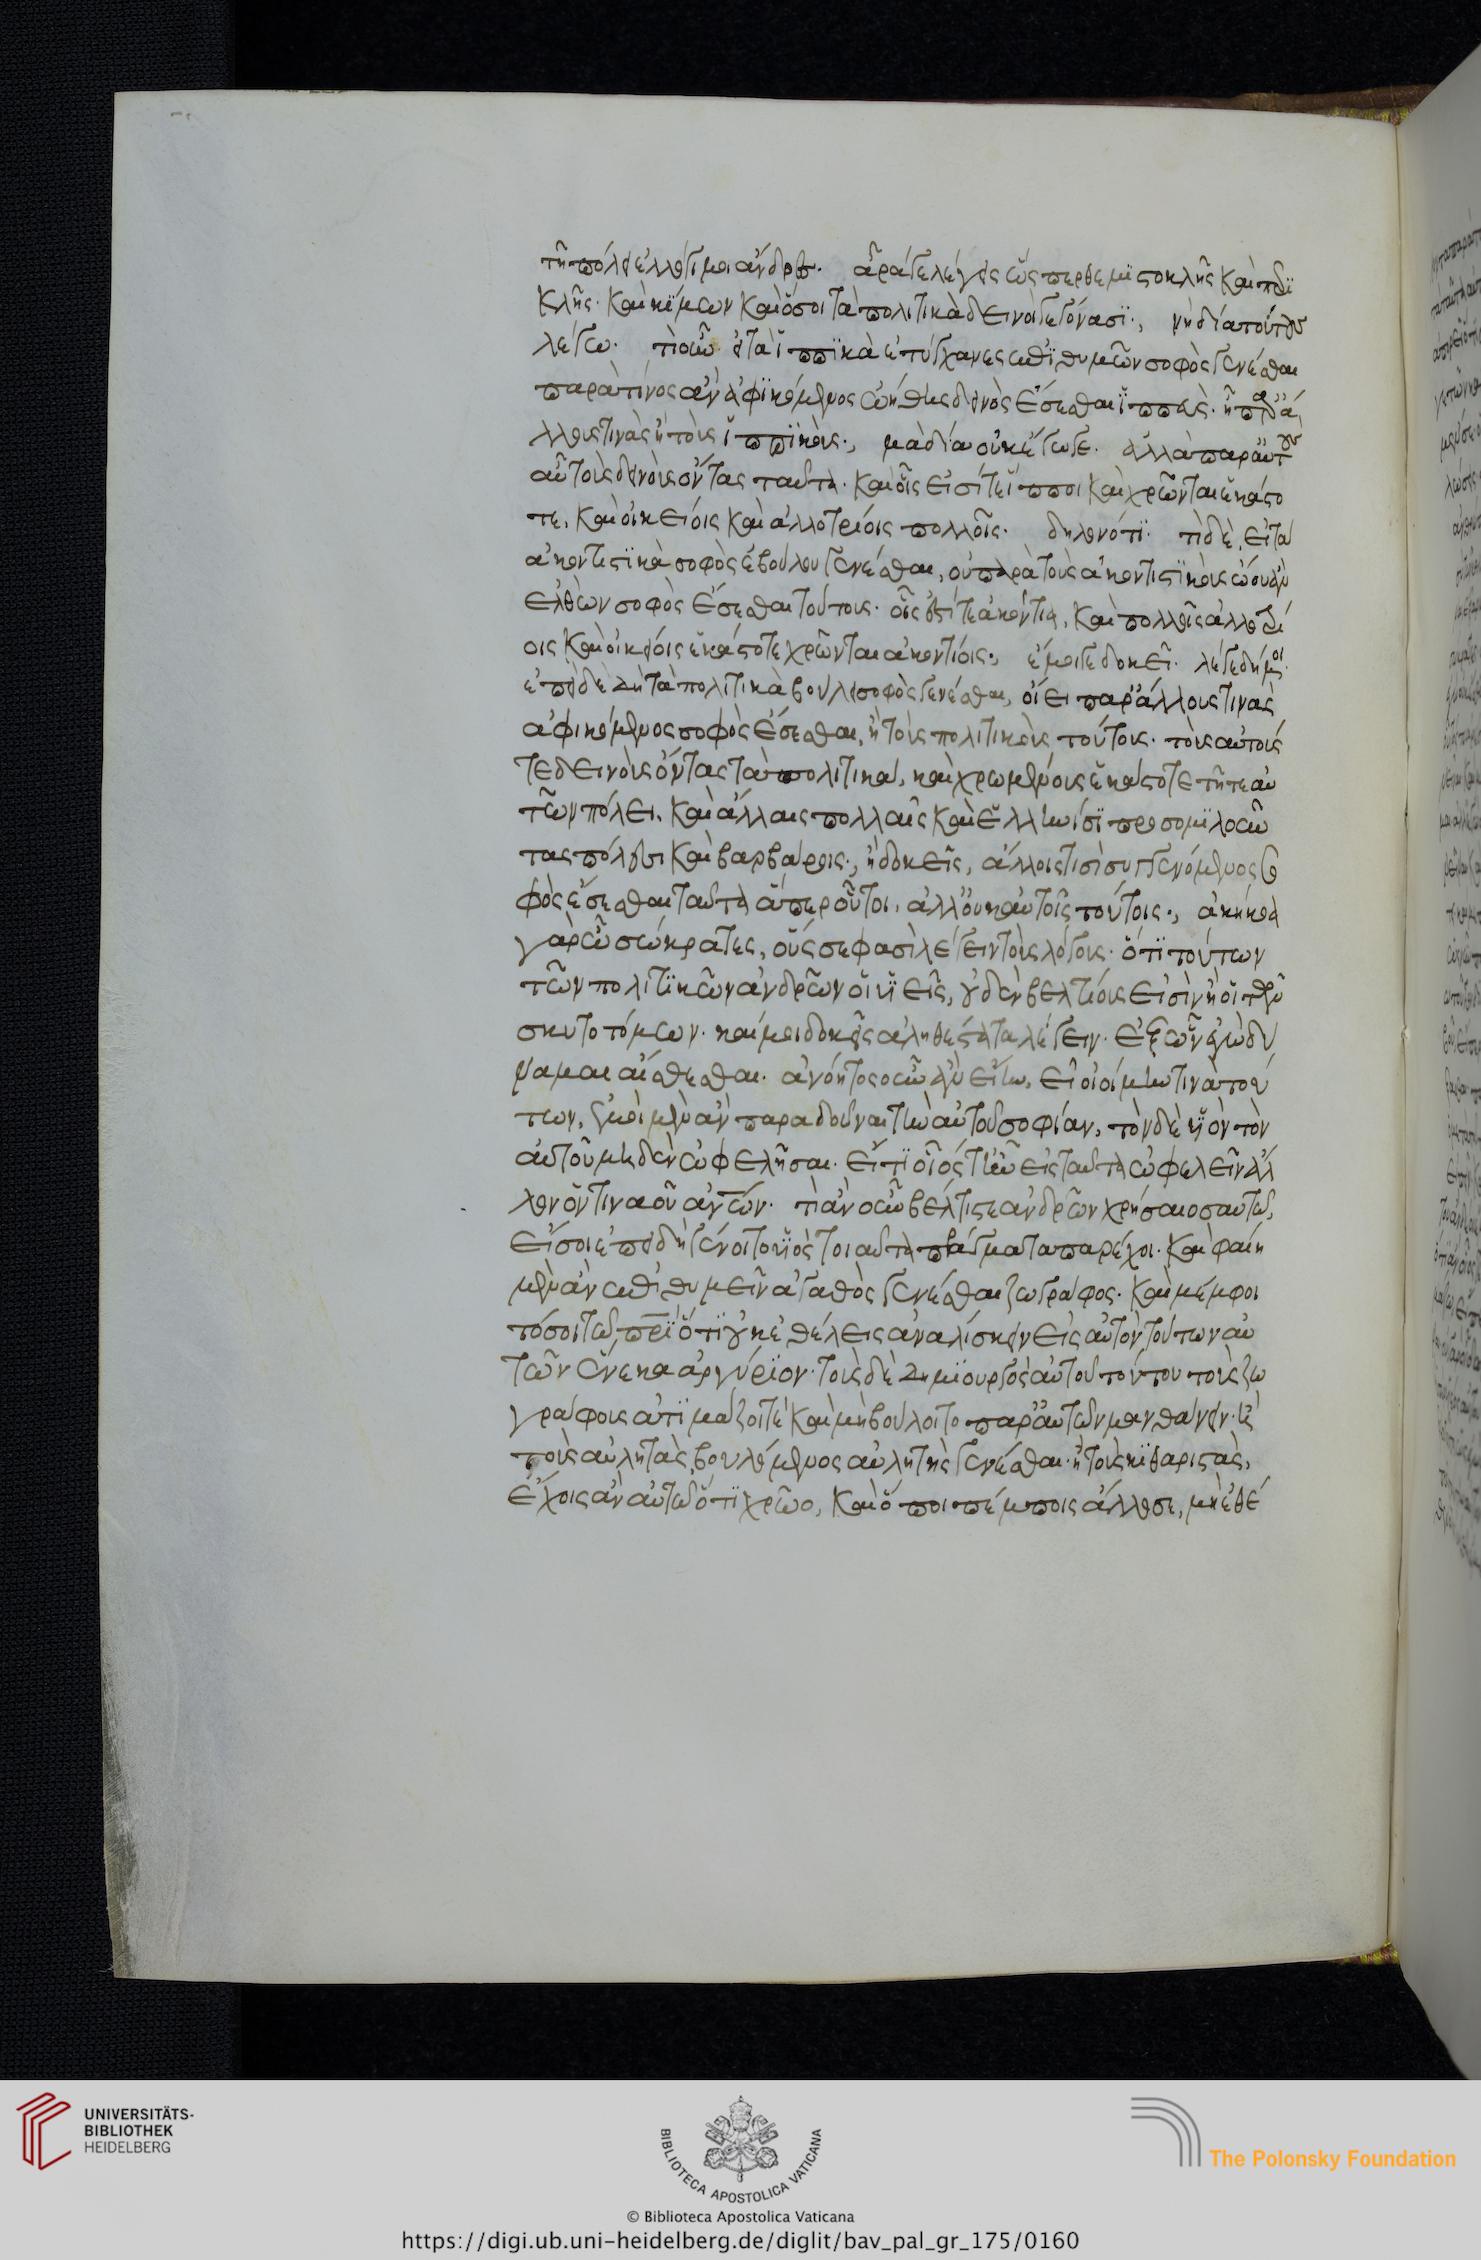 τῇ πόλει ἐλλόγιμοι ἄνδρες. ἆρα λέγεις ὥσπερ θεμιστοκλῆς καὶ περι
κλῆς· καὶ κίμων καὶ ὅσοι τὰ πολιτικὰ δεινοὶ γεγόνασι., νὴ δία τούτους
λέγω. τί οὖν εἰ τὰ ἱππικὰ ἐτύγχανες ἐπιθυμῶν σοφὸς γενέσθαι
παρὰ τίνος ἂν ἀφικόμενος ὠήθης δεινὸς ἔσεσθαι ἱππεύς. ἢ παρ' ἄ
λλους τινὰς ἢ τοὺς ἱππικούς., μὰ δία οὐκ ἔγωγε. ἀλλὰ παρ' αὐτοὺς
αὖ τοὺς δεινοὺς ὄντας ταῦτα. καὶ οἷς εἰσί τε ἵπποι καὶ χρῶνται ἑκάστο
τε, καὶ οἰκείοις καὶ ἀλλοτρίοις πολλοῖς. δηλονότι. τί δὲ, εἰ τὰ
ἀκοντιστικὰ σοφὸς ἐβούλου γενέσθαι, οὐ παρὰ τοὺς ἀκοντιστικοὺς ᾤου ἂν
ἐλθὼν σοφὸς ἔσεσθαι τούτους. οἷς ἐστί τε ἀκόντια, καὶ πολλοῖς ἀλλοτρί
οις καὶ οἰκείοις ἑκάστοτε χρῶνται ἀκοντίοις., ἔμοιγε δοκεῖ. λέγε δή μοι.
ἐπεὶ δὲ δὴ τὰ πολιτικὰ βούλει σοφὸς γενέσθαι, οἴει παρ' ἄλλους τινὰς
ἀφικόμενος σοφὸς ἔσεσθαι, ἢ τοὺς πολιτικοὺς τούτους. τοὺς αὐτούς
τε δεινοὺς ὄντας τὰ πολιτικά, καὶ χρωμένους ἑκάστοτε τῇ τε αὑ
τῶν πόλει, καὶ ἄλλαις πολλαῖς καὶ ἑλληνίσι προσομιλοῦν
τας πόλεσι καὶ βαρβάροις., ἢ δοκεῖς, ἄλλοις τισὶ συγγενόμενος σο
φὸς ἔσεσθαι ταῦτα ἅπερ οὗτοι, ἀλλ' οὐκ αὐτοῖς τούτοις., ἀκήκοα
γὰρ ὦ σώκρατες, οὕς σε φασὶ λέγειν τοὺς λόγους. ὅτι τούτων
τῶν πολιτικῶν ἀνδρῶν οἱ υἱεῖς, οὐδὲν βελτίους εἰσὶν ἢ οἱ τῶν
σκυτοτόμων. καί μοι δοκεῖς ἀληθέστατα λέγειν. ἐξ ὧν ἐγὼ δύ
ναμαι αἰσθέσθαι. ἀνόητος οὖν ἂν εἴην, εἰ οἰοίμην τινὰ τού
των, ἐμοὶ μὲν ἂν παραδοῦναι τὴν αὑτοῦ σοφίαν, τὸν δὲ υἱὸν τὸν
αὑτοῦ μηδὲν ὠφελῆσαι. εἴ τι οἷός τ' ἦν εἰς ταῦτα ὠφελεῖν ἄλ
λον ὅντινα οὖν ἀνθρώπων. τί ἂν οὖν βέλτιστε ἀνδρῶν χρήσαιο σαυτῷ,
εἴ σοι ἐπειδὴ γένοιτο υἱὸς τοιαῦτα πράγματα παρέχοι. καὶ φαίη
μὲν ἂν ἐπιθυμεῖν ἀγαθὸς γενέσθαι ζωγράφος. καὶ μέμφοι
τό σοι τῷ πατρὶ ὅτι οὐκ ἐθέλεις ἀναλίσκειν εἰς αὐτὸν τούτων αὐ
τῶν ἕνεκα ἀργύριον. τοὺς δὲ δημιουργοὺς αὐτοῦ τούτου τοὺς ζω
γράφους ἀτιμάζοι τε καὶ μὴ βούλοιτο παρ' αὐτῶν μανθάνειν. ἢ
τοὺς αὐλητὰς, βουλόμενος αὐλητὴς γενέσθαι. ἢ τοὺς κιθαριστάς,
ἔχοις ἂν αὐτῷ ὅτι χρῷο, καὶ ὅποι πέμποις ἄλλοσε, μὴ ἐθέ
UNIVERSITÄTS-
BIBLIOTHEK
HEIDELBERG
BIBLIOTECA APOSTOLICA VATICANA
The Polonsky Foundation
© Biblioteca Apostolica Vaticana
https://digi.ub.uni-heidelberg.de/diglit/bav_pal_gr_175/0160